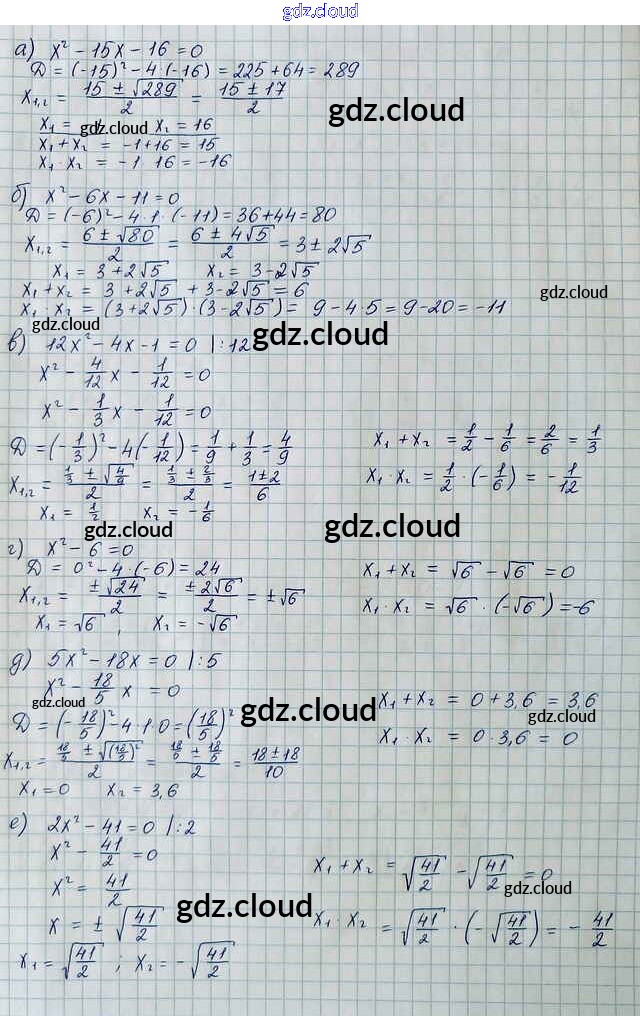 gdz.cloud
а) x² - 15x - 16 = 0
D = (-15)² - 4·(-16) = 225 + 64 = 289
x₁,₂ = (15 ± √289)/2 = (15 ± 17)/2
gdz.cloud
x₁ = gdz.cloud x₂ = 16
x₁ + x₂ = -1 + 16 = 15
x₁ · x₂ = -1 · 16 = -16
б) x² - 6x - 11 = 0
D = (-6)² - 4 · 1 · (-11) = 36 + 44 = 80
x₁,₂ = (6 ± √80)/2 = (6 ± 4√5)/2 = 3 ± 2√5
x₁ = 3 + 2√5 x₂ = 3 - 2√5
x₁ + x₂ = 3 + 2√5 + 3 - 2√5 = 6
gdz.cloud
x₁ · x₂ = (3 + 2√5) · (3 - 2√5) = 9 - 4 · 5 = 9 - 20 = -11
gdz.cloud
в) 12x² - 4x - 1 = 0 |:12
gdz.cloud
x² - 4/12 x - 1/12 = 0
x² - 1/3 x - 1/12 = 0
D = (-1/3)² - 4(-1/12) = 1/9 + 1/3 = 4/9
x₁,₂ = (1/3 ± √(4/9))/2 = (1/3 ± 2/3)/2 = (1 ± 2)/6
x₁ = 1/2 x₂ = -1/6
x₁ + x₂ = 1/2 - 1/6 = 2/6 = 1/3
x₁ · x₂ = 1/2 · (-1/6) = -1/12
gdz.cloud
gdz.cloud
г) x² - 6 = 0
D = 0² - 4 · (-6) = 24
x₁,₂ = ±√24/2 = ±2√6/2 = ±√6
x₁ = √6 , x₂ = -√6
x₁ + x₂ = √6 - √6 = 0
x₁ · x₂ = √6 · (-√6) = -6
д) 5x² - 18x = 0 |:5
x² - 18/5 x = 0
gdz.cloud
D = (-18/5)² - 4 · 1 · 0 = (18/5)²
gdz.cloud
x₁,₂ = (18/5 ± √(18/5)²)/2 = (18/5 ± 18/5)/2 = (18 ± 18)/10
x₁ = 0 x₂ = 3,6
x₁ + x₂ = 0 + 3,6 = 3,6
gdz.cloud
x₁ · x₂ = 0 · 3,6 = 0
е) 2x² - 41 = 0 |:2
x² - 41/2 = 0
x² = 41/2
x = ± √(41/2)
gdz.cloud
x₁ = √(41/2) ; x₂ = -√(41/2)
x₁ + x₂ = √(41/2) - √(41/2) = 0
gdz.cloud
x₁ · x₂ = √(41/2) · (-√(41/2)) = -41/2
gdz.cloud